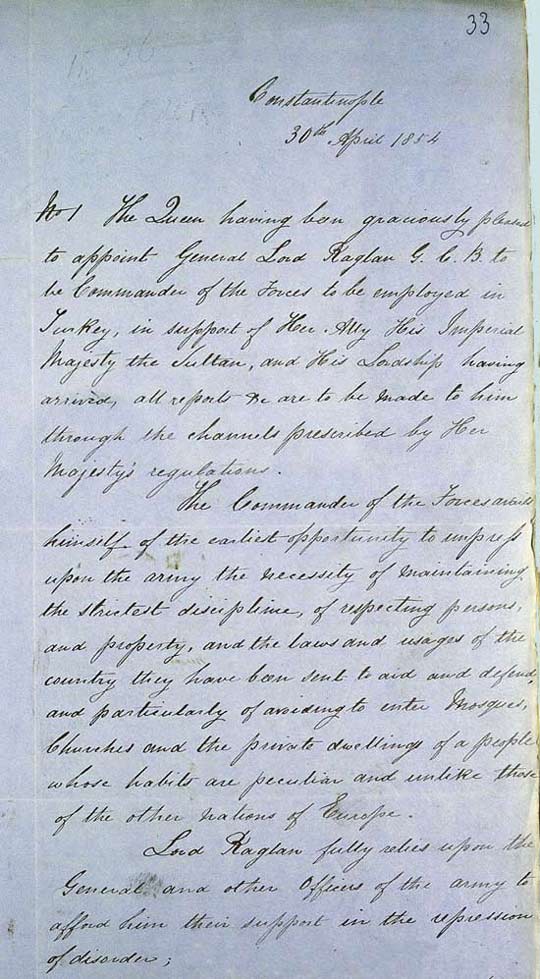 33
Constantinople
30th April 1854
No 1 The Queen having been graciously pleased
to appoint General Lord Raglan G. C. B. to
be Commander of the Forces to be employed in
Turkey, in support of Her Ally His Imperial
Majesty the Sultan, and His Lordship having
arrived, all reports &c are to be made to him
through the channels prescribed by Her
Majesty's regulations.
The Commander of the Forces avails
himself of the earliest opportunity to impress
upon the army the necessity of maintaining
the strictest discipline, of respecting persons,
and property, and the laws and usages of the
country they have been sent to aid and defend,
and particularly of avoiding to enter Mosques,
Churches and the private dwellings of a people
whose habits are peculiar and unlike those
of the other nations of Europe.
Lord Raglan fully relies upon the
General and other Officers of the army to
afford him their support in the repression
of disorder;